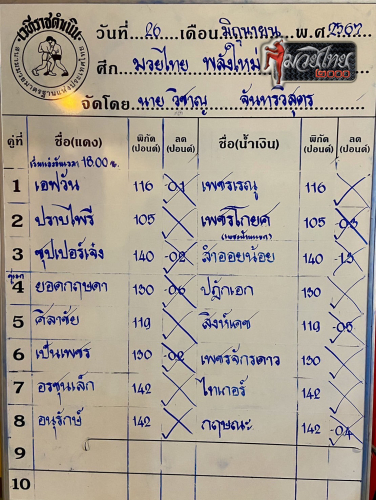 เวทีราชดำเนิน
สนามมวยมาตรฐานแห่งประเทศไทย
วันที่ 26 เดือน มิถุนายน พ.ศ. 2567
ศึก มวยไทย พลังใหม่
มวยไทย ๒๐๐๐
จัดโดย นาย วิชาญ จันทรวิสูตร
คู่ที่ ชื่อ(แดง) พิกัด (ปอนด์) ลด (ปอนด์) ชื่อ(น้ำเงิน) พิกัด (ปอนด์) ลด (ปอนด์)
เริ่มแข่งขันเวลา 18.00 น.
1 เอฟวัน 116 -0.1 เพชรเรณู 116
2 ปราบไพรี 105 เพชรโกยศ 105 -0.3
3 ซุปเปอร์เจ๋ง 140 -0.2 ลำออยน้อย 140 -1.3
4 ยอดกฤษดา 130 -0.6 ปฏักเอก 130
5 ศิลาชัย 119 สิงห์เดช 119 -0.5
6 เป็นเพชร 130 -0.2 เพชรจักรดาว 130
7 อรชุนเล็ก 142 ไทเกอร์ 142
8 อนุรักษ์ 142 กฤษณะ 142 -0.4
9
10